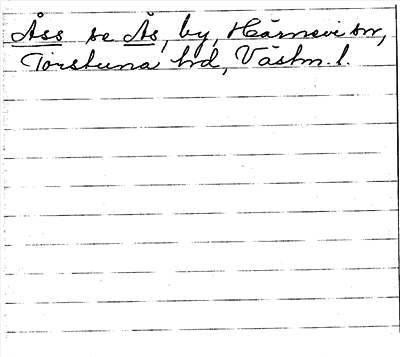 Åss se Ås, by, Härnevi sn,
Torstuna hd, Västm. l.